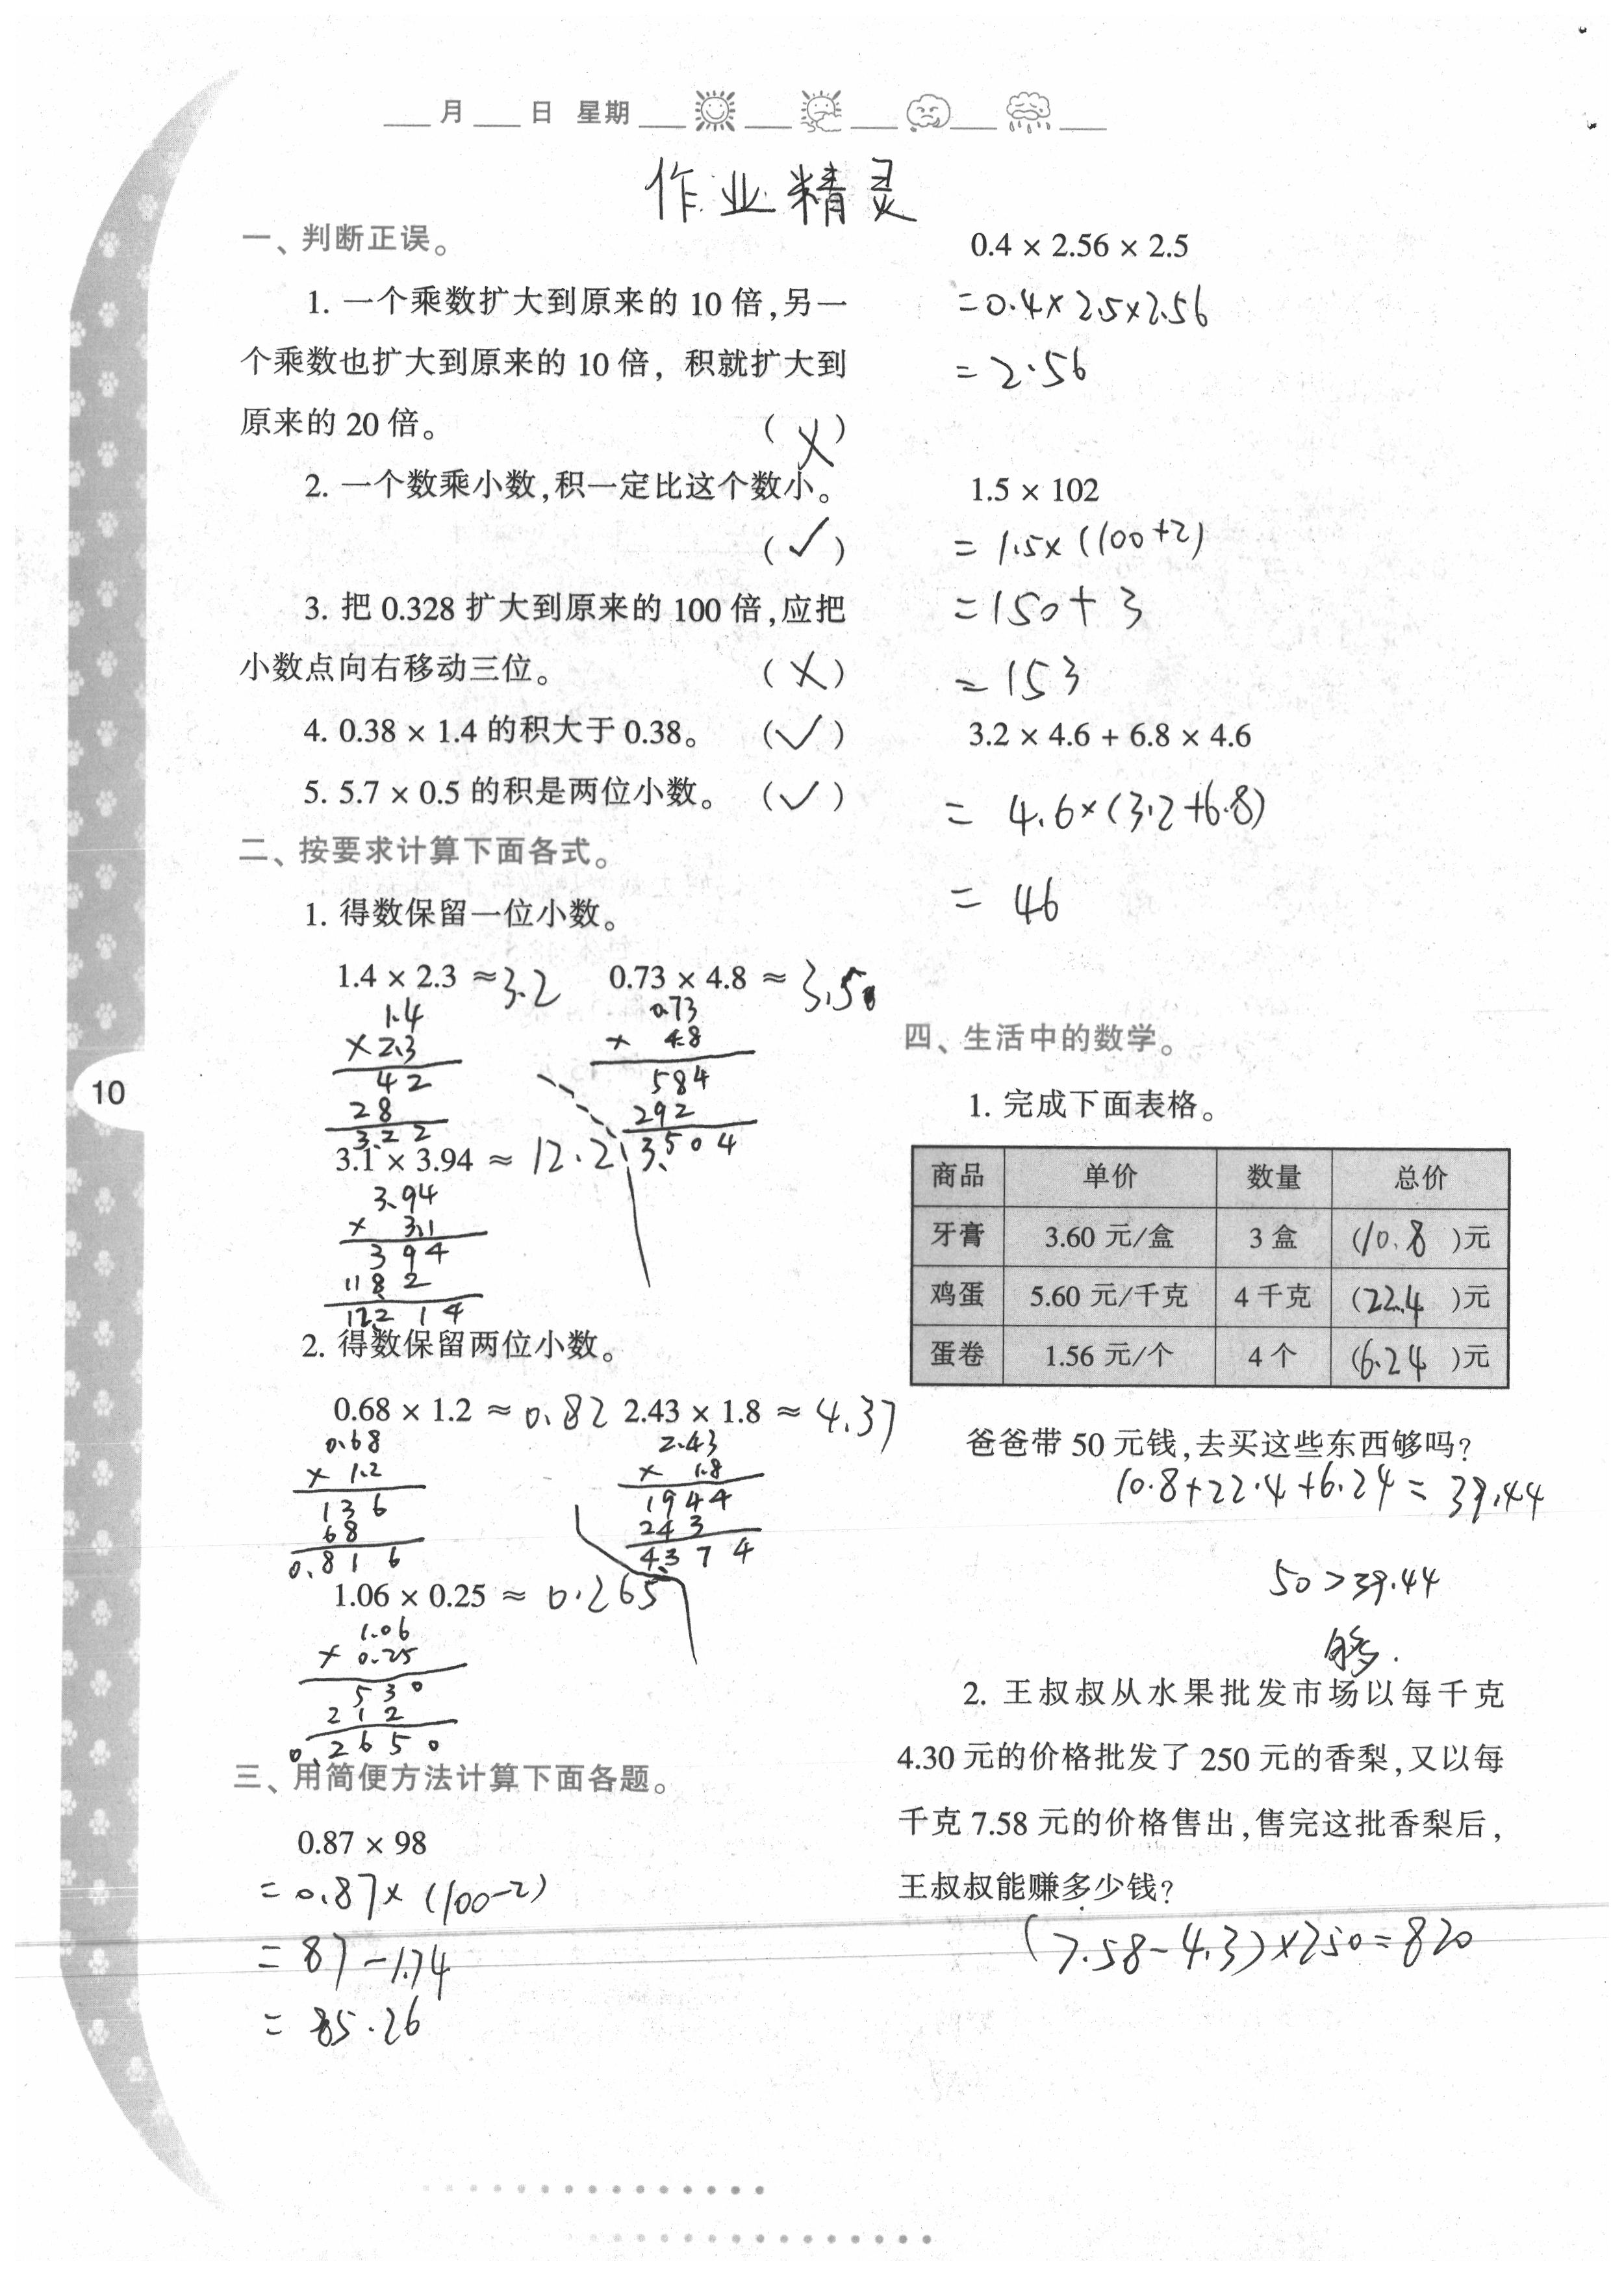 ___月___日 星期___ ___ ___ ___
作业精灵
一、判断正误。
1. 一个乘数扩大到原来的 10 倍,另一
个乘数也扩大到原来的 10 倍, 积就扩大到
原来的 20 倍。 (X)
2. 一个数乘小数,积一定比这个数小。
(✓)
3. 把 0.328 扩大到原来的 100 倍,应把
小数点向右移动三位。 (X)
4. 0.38 × 1.4 的积大于 0.38。 (✓)
5. 5.7 × 0.5 的积是两位小数。 (✓)
二、按要求计算下面各式。
1. 得数保留一位小数。
1.4 × 2.3 ≈ 3.2 0.73 × 4.8 ≈ 3.5
1.4
×2.3
42
28
3.22
0.73
× 4.8
584
292
3.504
3.1 × 3.94 ≈ 12.2
3.94
× 3.1
394
1182
12.214
2. 得数保留两位小数。
0.68 × 1.2 ≈ 0.82 2.43 × 1.8 ≈ 4.37
0.68
× 1.2
136
68
0.816
2.43
× 1.8
1944
243
4.374
1.06 × 0.25 ≈ 0.265
1.06
× 0.25
530
212
0.2650
三、用简便方法计算下面各题。
0.87 × 98
= 0.87×(100-2)
= 87-1.74
= 85.26
0.4 × 2.56 × 2.5
=0.4×2.5×2.56
= 2.56
1.5 × 102
= 1.5×(100+2)
=150+3
= 153
3.2 × 4.6 + 6.8 × 4.6
= 4.6×(3.2+6.8)
= 46
四、生活中的数学。
1. 完成下面表格。
商品 单价 数量 总价
牙膏 3.60 元/盒 3 盒 (10.8)元
鸡蛋 5.60 元/千克 4 千克 (22.4)元
蛋卷 1.56 元/个 4 个 (6.24)元
爸爸带 50 元钱,去买这些东西够吗?
10.8+22.4+6.24=39.44
50>39.44
够.
2. 王叔叔从水果批发市场以每千克
4.30 元的价格批发了 250 元的香梨,又以每
千克 7.58 元的价格售出,售完这批香梨后,
王叔叔能赚多少钱?
(7.58-4.3)×250=820
10